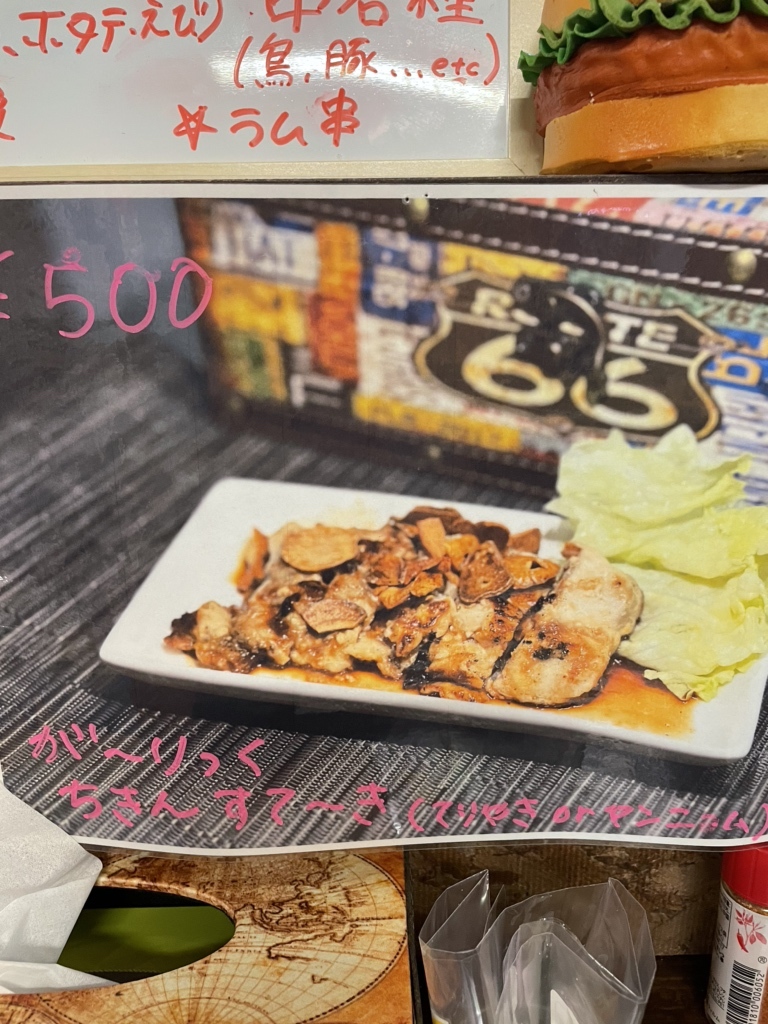 、ホタテ.えび) 串各種
(鳥、豚...etc)
☆ラム串
¥500
ROUTE
66
が〜りっく
ちきんすて〜き(てりやき or ヤンニョム)